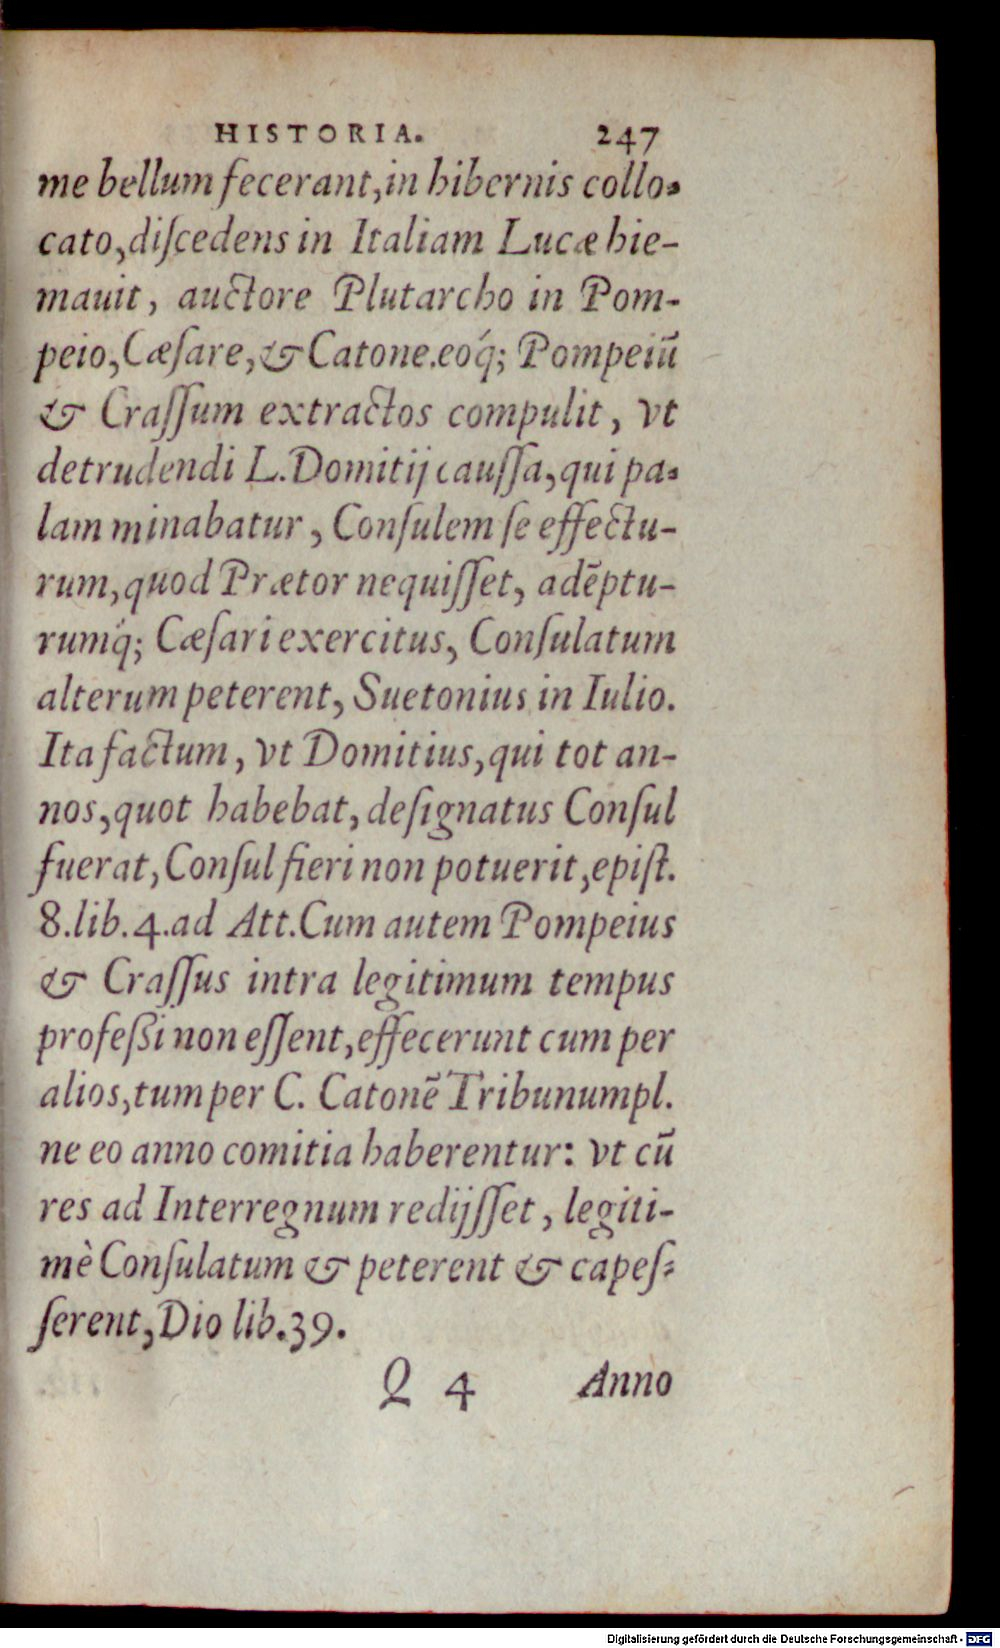 HISTORIA. 247
me bellum fecerant, in hibernis collo-
cato, diſcedens in Italiam Lucæ hie-
mauit, auctore Plutarcho in Pom-
peio, Cæſare, & Catone. eoq́; Pompeiũ
& Craſſum extractos compulit, vt
detrudendi L. Domitij cauſſa, qui pa-
lam minabatur, Conſulem ſe effectu-
rum, quod Prætor nequiſſet, adẽptu-
rumq́; Cæſari exercitus, Conſulatum
alterum peterent, Suetonius in Iulio.
Ita factum, vt Domitius, qui tot an-
nos, quot habebat, deſignatus Conſul
fuerat, Conſul fieri non potuerit, epiſt.
8. lib. 4. ad Att. Cum autem Pompeius
& Craſſus intra legitimum tempus
profeßi non eſſent, effecerunt cum per
alios, tum per C. Catonẽ Tribunum pl.
ne eo anno comitia haberentur: vt cũ
res ad Interregnum redijſſet, legiti-
mè Conſulatum & peterent & capeſ-
ſerent, Dio lib. 39.
Q 4 Anno
Digitalisierung gefördert durch die Deutsche Forschungsgemeinschaft - DFG